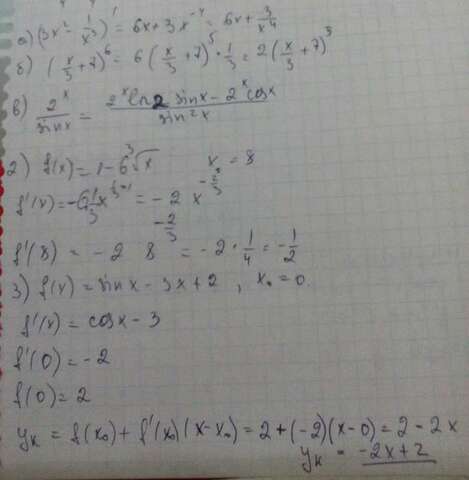 а) (3x² - 1/x³)' = 6x + 3x⁻⁴ = 6x + 3/x⁴
б) (x/3 + 7)⁶ = 6(x/3 + 7)⁵ · 1/3 = 2(x/3 + 7)⁵
в) 2ˣ/sinx = (2ˣ ln2 sinx - 2ˣ cosx)/sin²x
2) f(x) = 1 - 6∛x x₀ = 8
f'(x) = -6 1/3 x^(1/3 - 1) = -2 x^(-2/3)
f'(8) = -2 8^(-2/3) = -2 · 1/4 = -1/2
3) f(x) = sinx - 3x + 2, x₀ = 0.
f'(x) = cosx - 3
f'(0) = -2
f(0) = 2
yк = f(x₀) + f'(x₀)(x - x₀) = 2 + (-2)(x - 0) = 2 - 2x
yк = -2x + 2